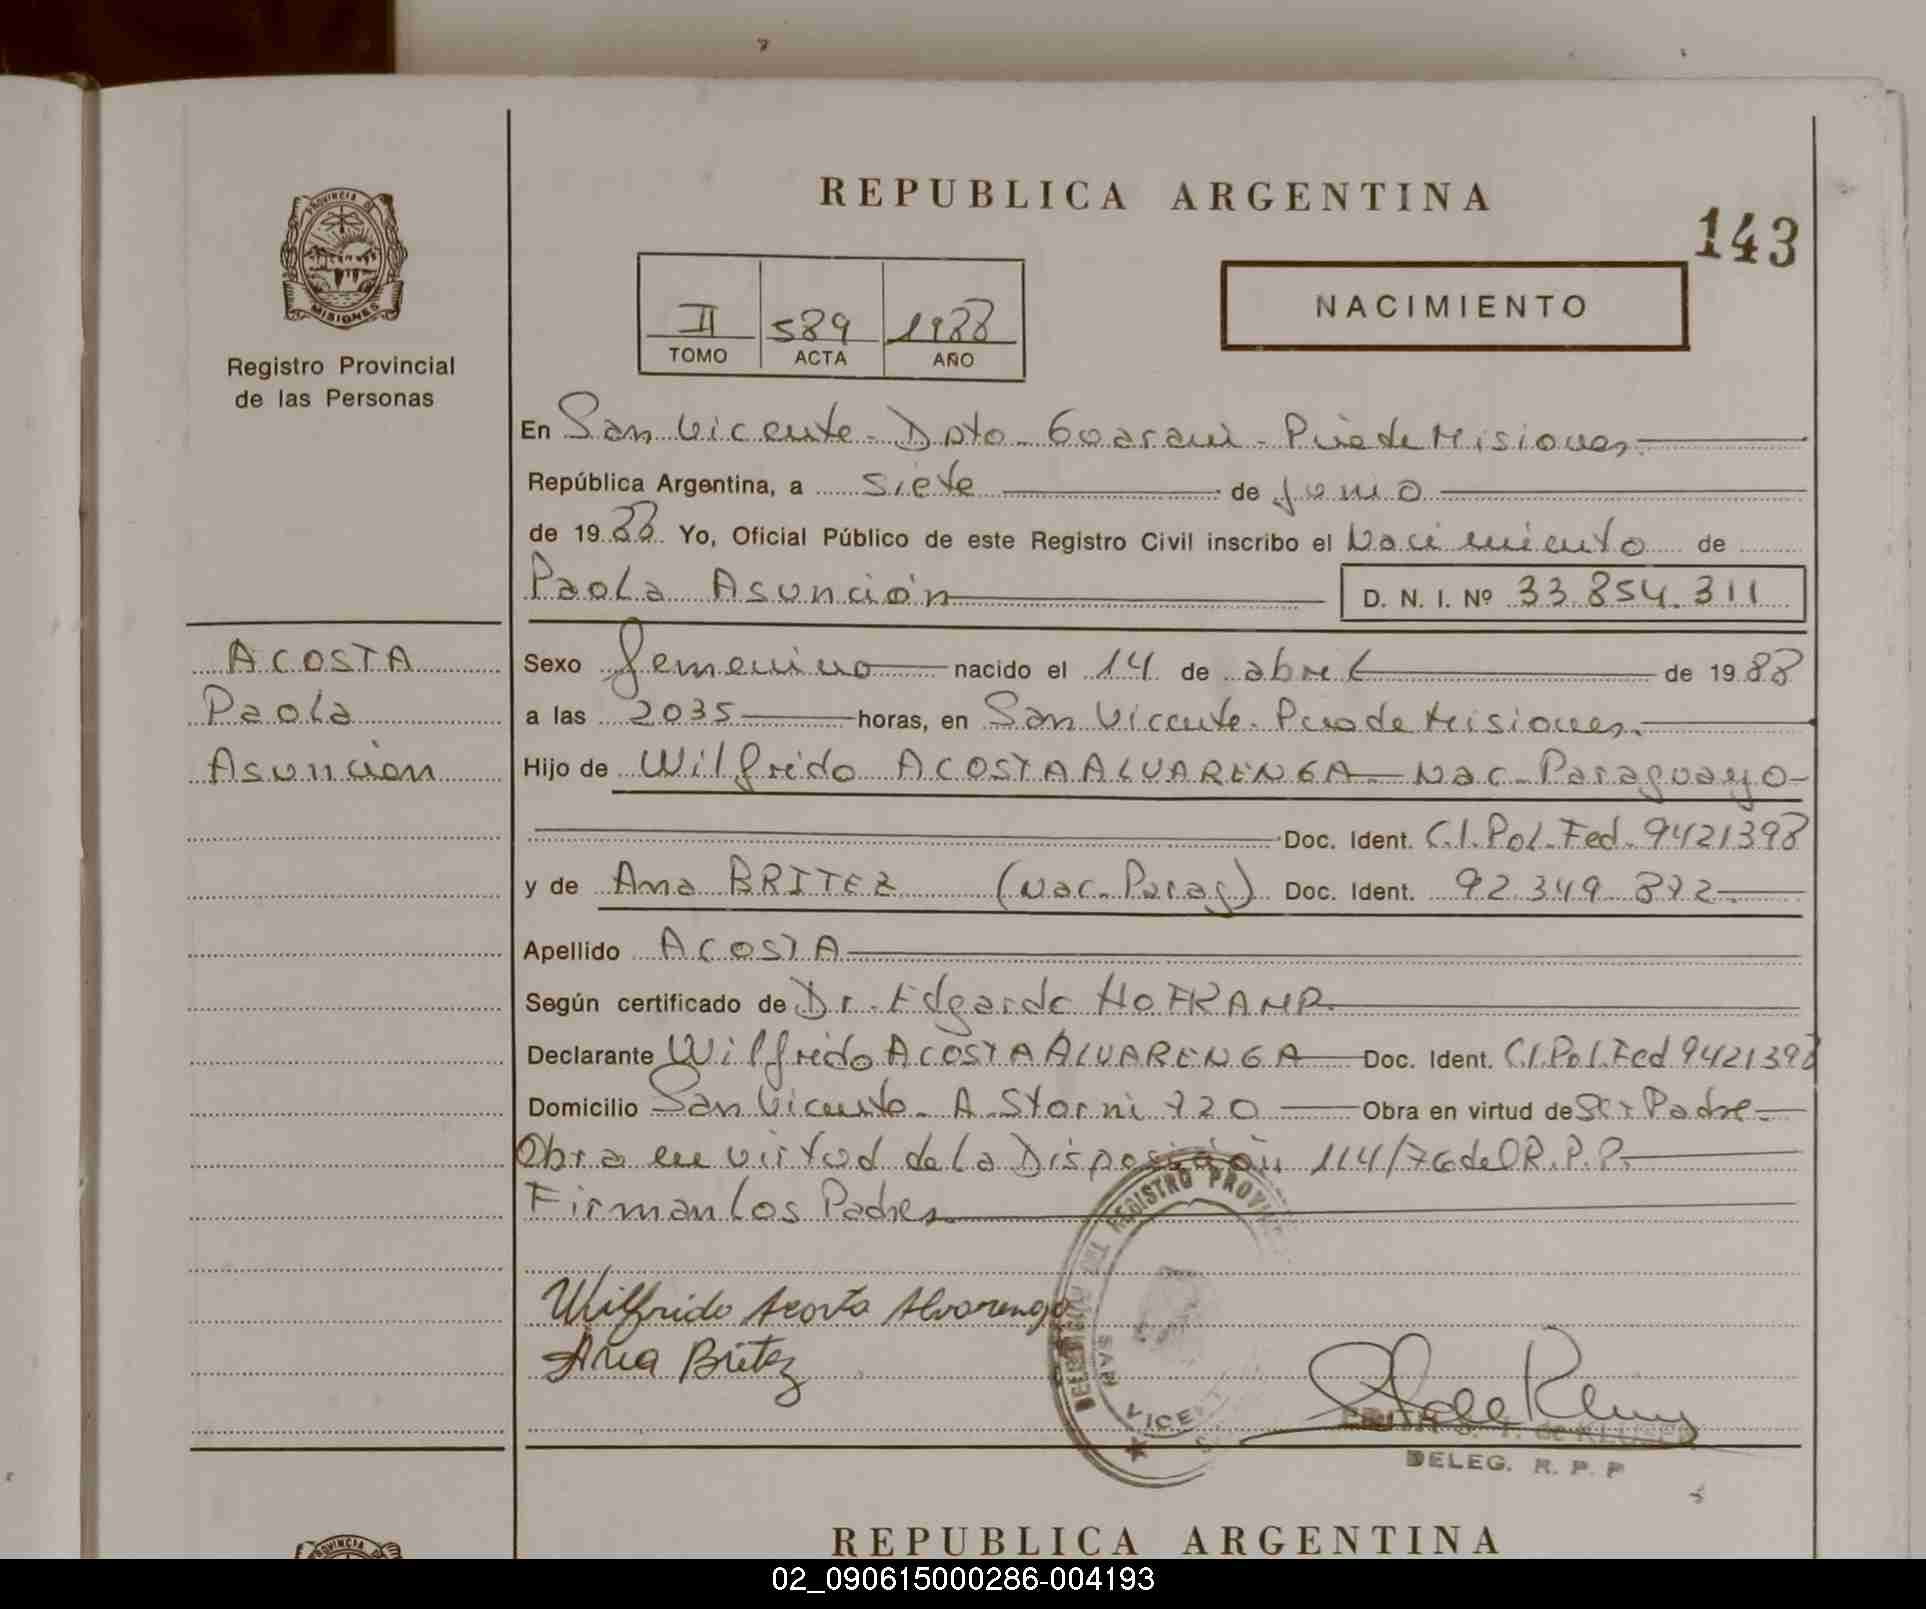 REPUBLICA ARGENTINA
143
PROVINCIA DE
MISIONES
Registro Provincial
de las Personas
II 589 1988
TOMO ACTA AÑO
NACIMIENTO
En San Vicente - Dpto - Guarani - Pcia de Misiones
República Argentina, a siete de junio
de 1988 Yo, Oficial Público de este Registro Civil inscribo el Nacimiento de
Paola Asunción D. N. I. Nº 33.854.311
ACOSTA
Paola
Asuncion
Sexo femenino nacido el 14 de abril de 1988
a las 2035 horas, en San Vicente - Pcia de Misiones.
Hijo de Wilfrido ACOSTA ALVARENGA - Nac - Paraguayo -
Doc. Ident. C.I. Pol. Fed. 9421398
y de Ana BRITEZ (Nac - Parag) Doc. Ident. 92.349.872
Apellido ACOSTA
Según certificado de Dr. Edgardo HOFKAMP
Declarante Wilfrido ACOSTA ALVARENGA Doc. Ident. C.I. Pol. Fed 9421398
Domicilio San Vicente - A. Storni 720 Obra en virtud de ser Padre
Obra en virtud de la Disposición 114/76 del R.P.P.
Firman los Padres
Wilfrido Acosta Alvarenga
Ana Britez
REGISTRO PROV
SAN VICE
de KLUSER
DELEG. R. P. P
PROVINCIA
REPUBLICA ARGENTINA
02_090615000286-004193